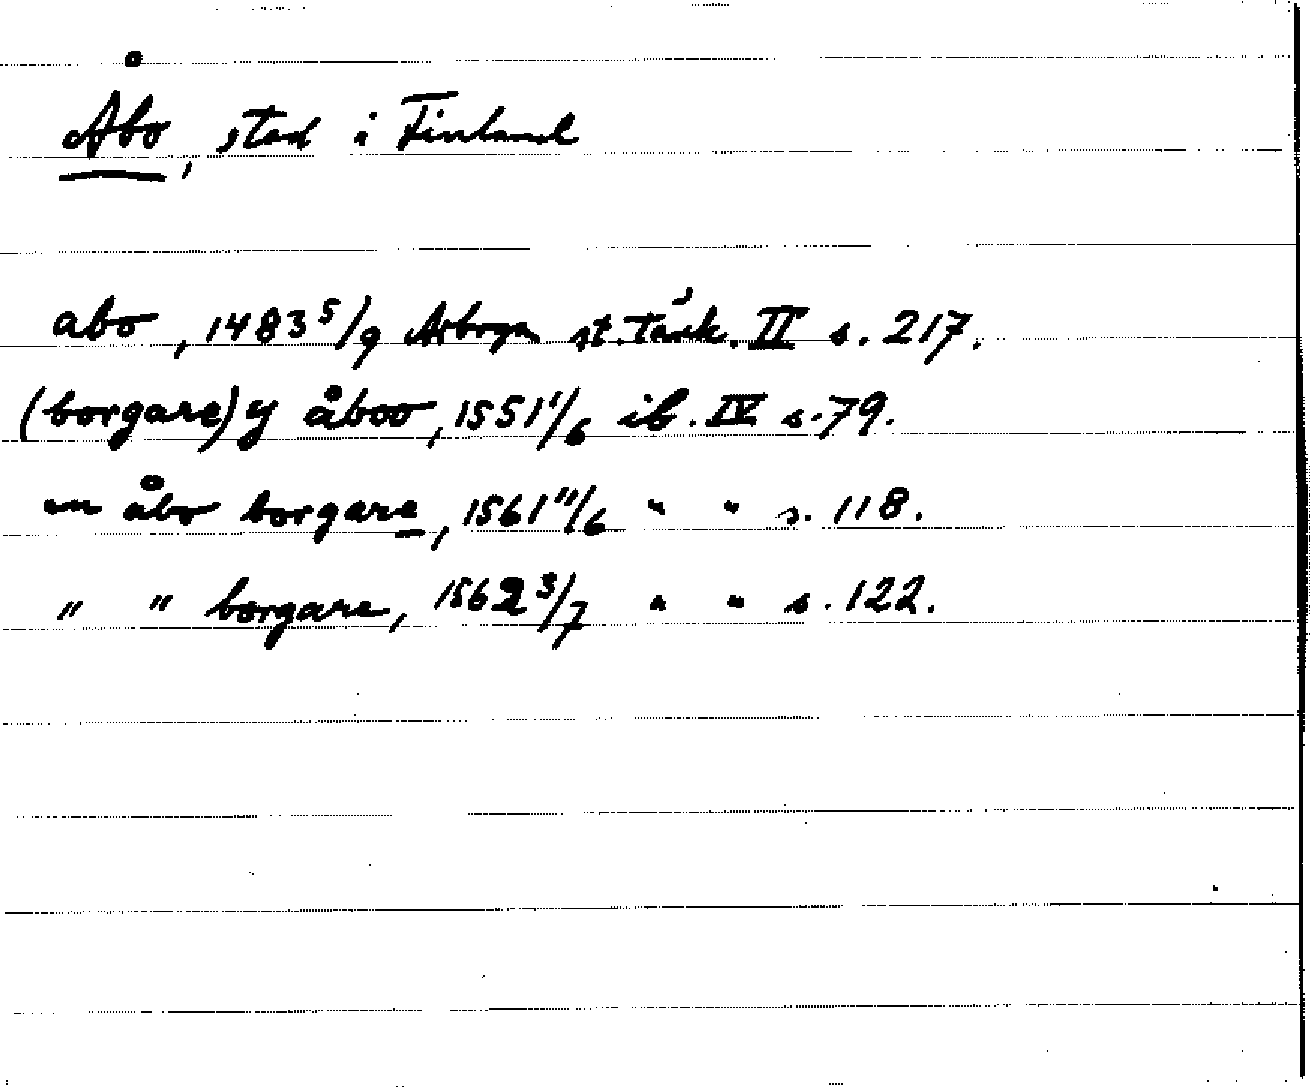 Åbo, stad i Finland
abo, 1483 5/9 Arboga st. tänk. II s. 217.
(borgare) y åboo, 1551 1/6 ib. IV s. 79.
en åbo borgare, 1561 11/6 " " s. 118.
" " borgare, 1562 3/7 " " s. 122.